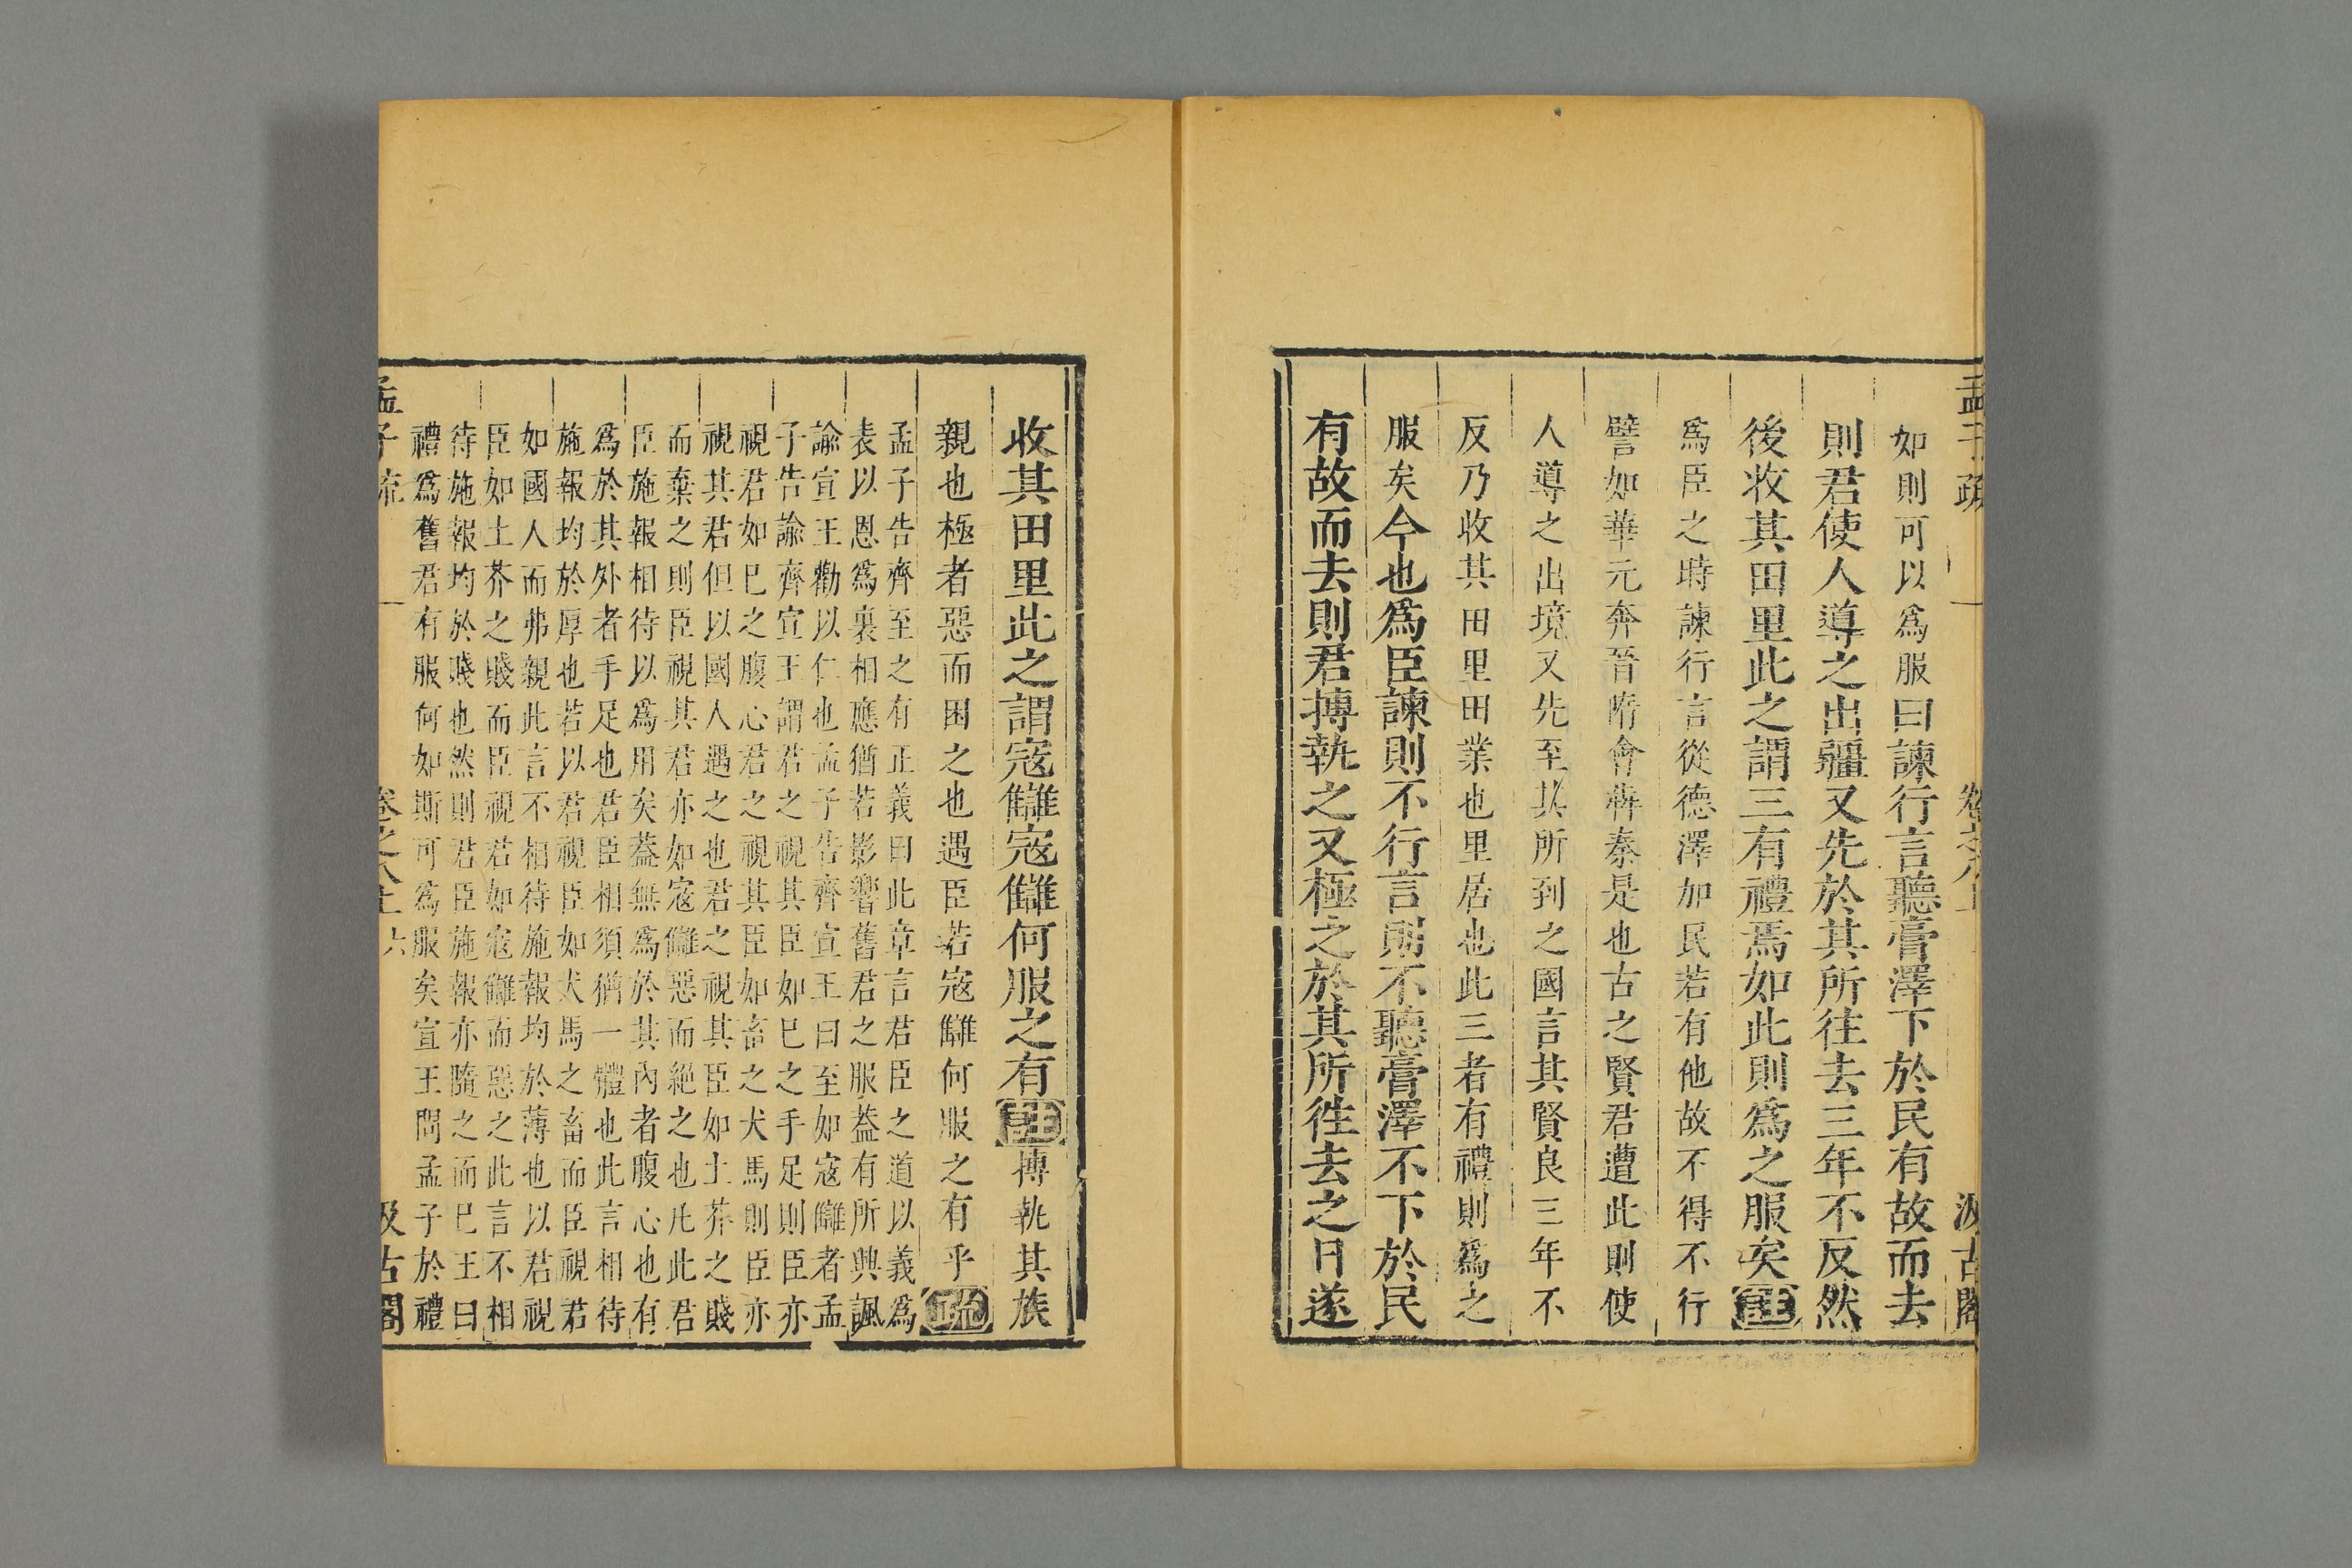 孟子疏 卷之八上 汲古閣
如則可以爲服曰諫行言聽膏澤下於民有故而去
則君使人導之出疆又先於其所往去三年不反然
後收其田里此之謂三有禮焉如此則爲之服矣註
爲臣之時諫行言從德澤加民若有他故不得不行
譬如華元奔晉隨會奔秦是也古之賢君遭此則使
人導之出境又先至其所到之國言其賢良三年不
反乃收其田里田業也里居也此三者有禮則爲之
服矣今也爲臣諫則不行言則不聽膏澤不下於民
有故而去則君搏執之又極之於其所徃去之日遂
收其田里此之謂寇讎寇讎何服之有註搏執其族
親也極者惡而困之也遇臣若寇讎何服之有乎疏
孟子告齊至之有正義曰此章言君臣之道以義爲
表以恩爲裏相應猶若影響舊君之服葢有所興諷
諭宣王勸以仁也孟子告齊宣王曰至如寇讎者孟
子告諭齊宣王謂君之視其臣如巳之手足則臣亦
視君如巳之腹心君之視其臣如畜之犬馬則臣亦
視其君但以國人遇之也君之視其臣如土芥之賤
而棄之則臣視其君亦如寇讎惡而絶之也凡此君
臣施報相待以爲用矣葢無爲於其內者腹心也有
爲於其外者手足也君臣相須猶一體也此言相待
施報均於厚也若以君視臣如犬馬之畜而臣視君
如國人而弗親此言不相待施報均於薄也以君視
臣如土芥之賤而臣視君如寇讎而惡之此言不相
待施報均於賤也然則君臣施報亦隨之而巳王曰
禮爲舊君有服何如斯可爲服矣宣王問孟子於禮
孟子疏 卷之八上 六 汲古閣